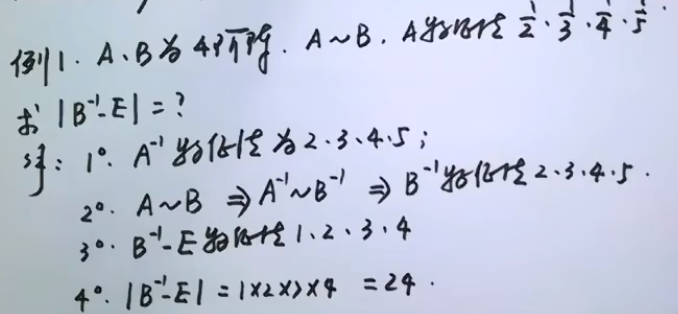 例1. A、B为4阶阵. A~B. A的特征值 1/2、1/3、1/4、1/5
求 |B⁻¹-E| = ?
解: 1°. A⁻¹ 的特征值为 2、3、4、5;
2°. A~B ⇒ A⁻¹~B⁻¹ ⇒ B⁻¹特征值 2、3、4、5.
3°. B⁻¹-E 的特征值 1、2、3、4
4°. |B⁻¹-E| = 1×2×3×4 = 24.